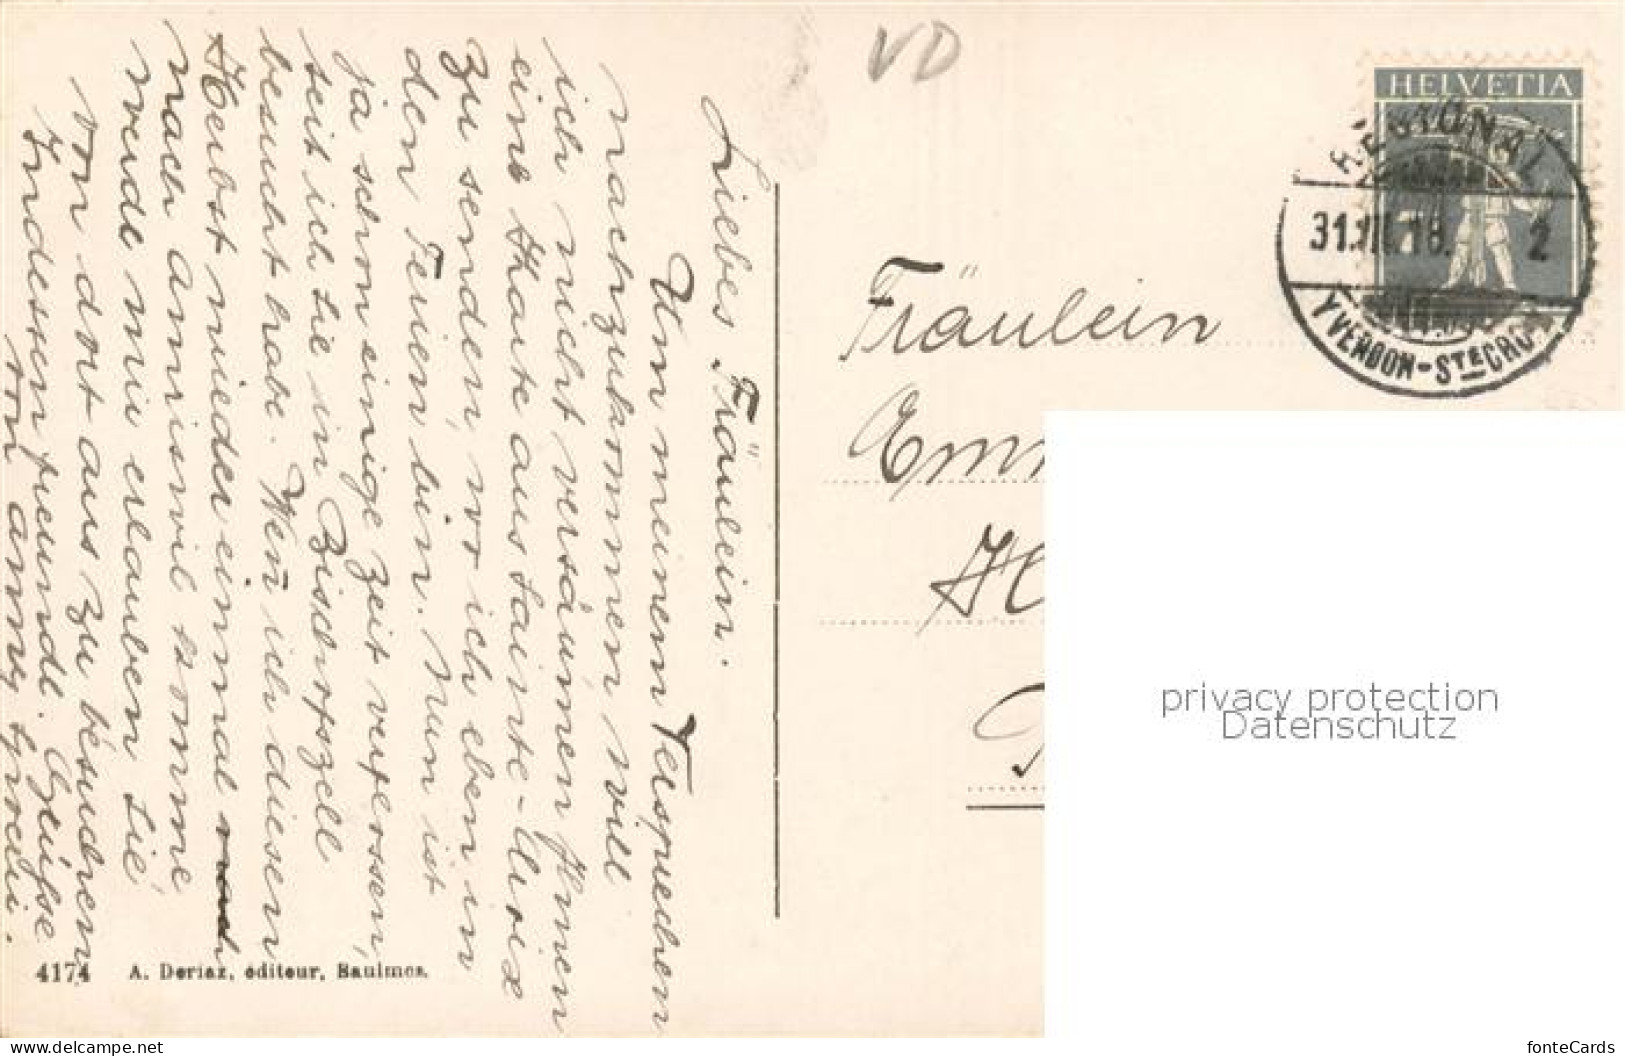 VD
HELVETIA
REGIONAL
31.VII.18. 2
YVERDON-STE CROIX
Liebes Fräulein.
Um meinem Versprechen
nachzukommen, will
ich nicht versäumen Ihnen
eine Kharte aus Sainte-Croix
zu senden, wo ich eben in
den Ferien bin. Nun ist
ja schon einige Zeit verflossen,
seit ich Sie in Bischofszell
besucht habe. Wenn ich diesen
Herbst wieder einmal nach
nach Amriswil komme
würde mir erlauben Sie
von dort aus zu besuchen.
Indessen freundl. Grüsse
von
Fräulein
Em
H
4174 A. Deriaz, éditeur, Baulmes.
privacy protection
Datenschutz
www.delcampe.net
karten_fuer_sammler
fonteCards